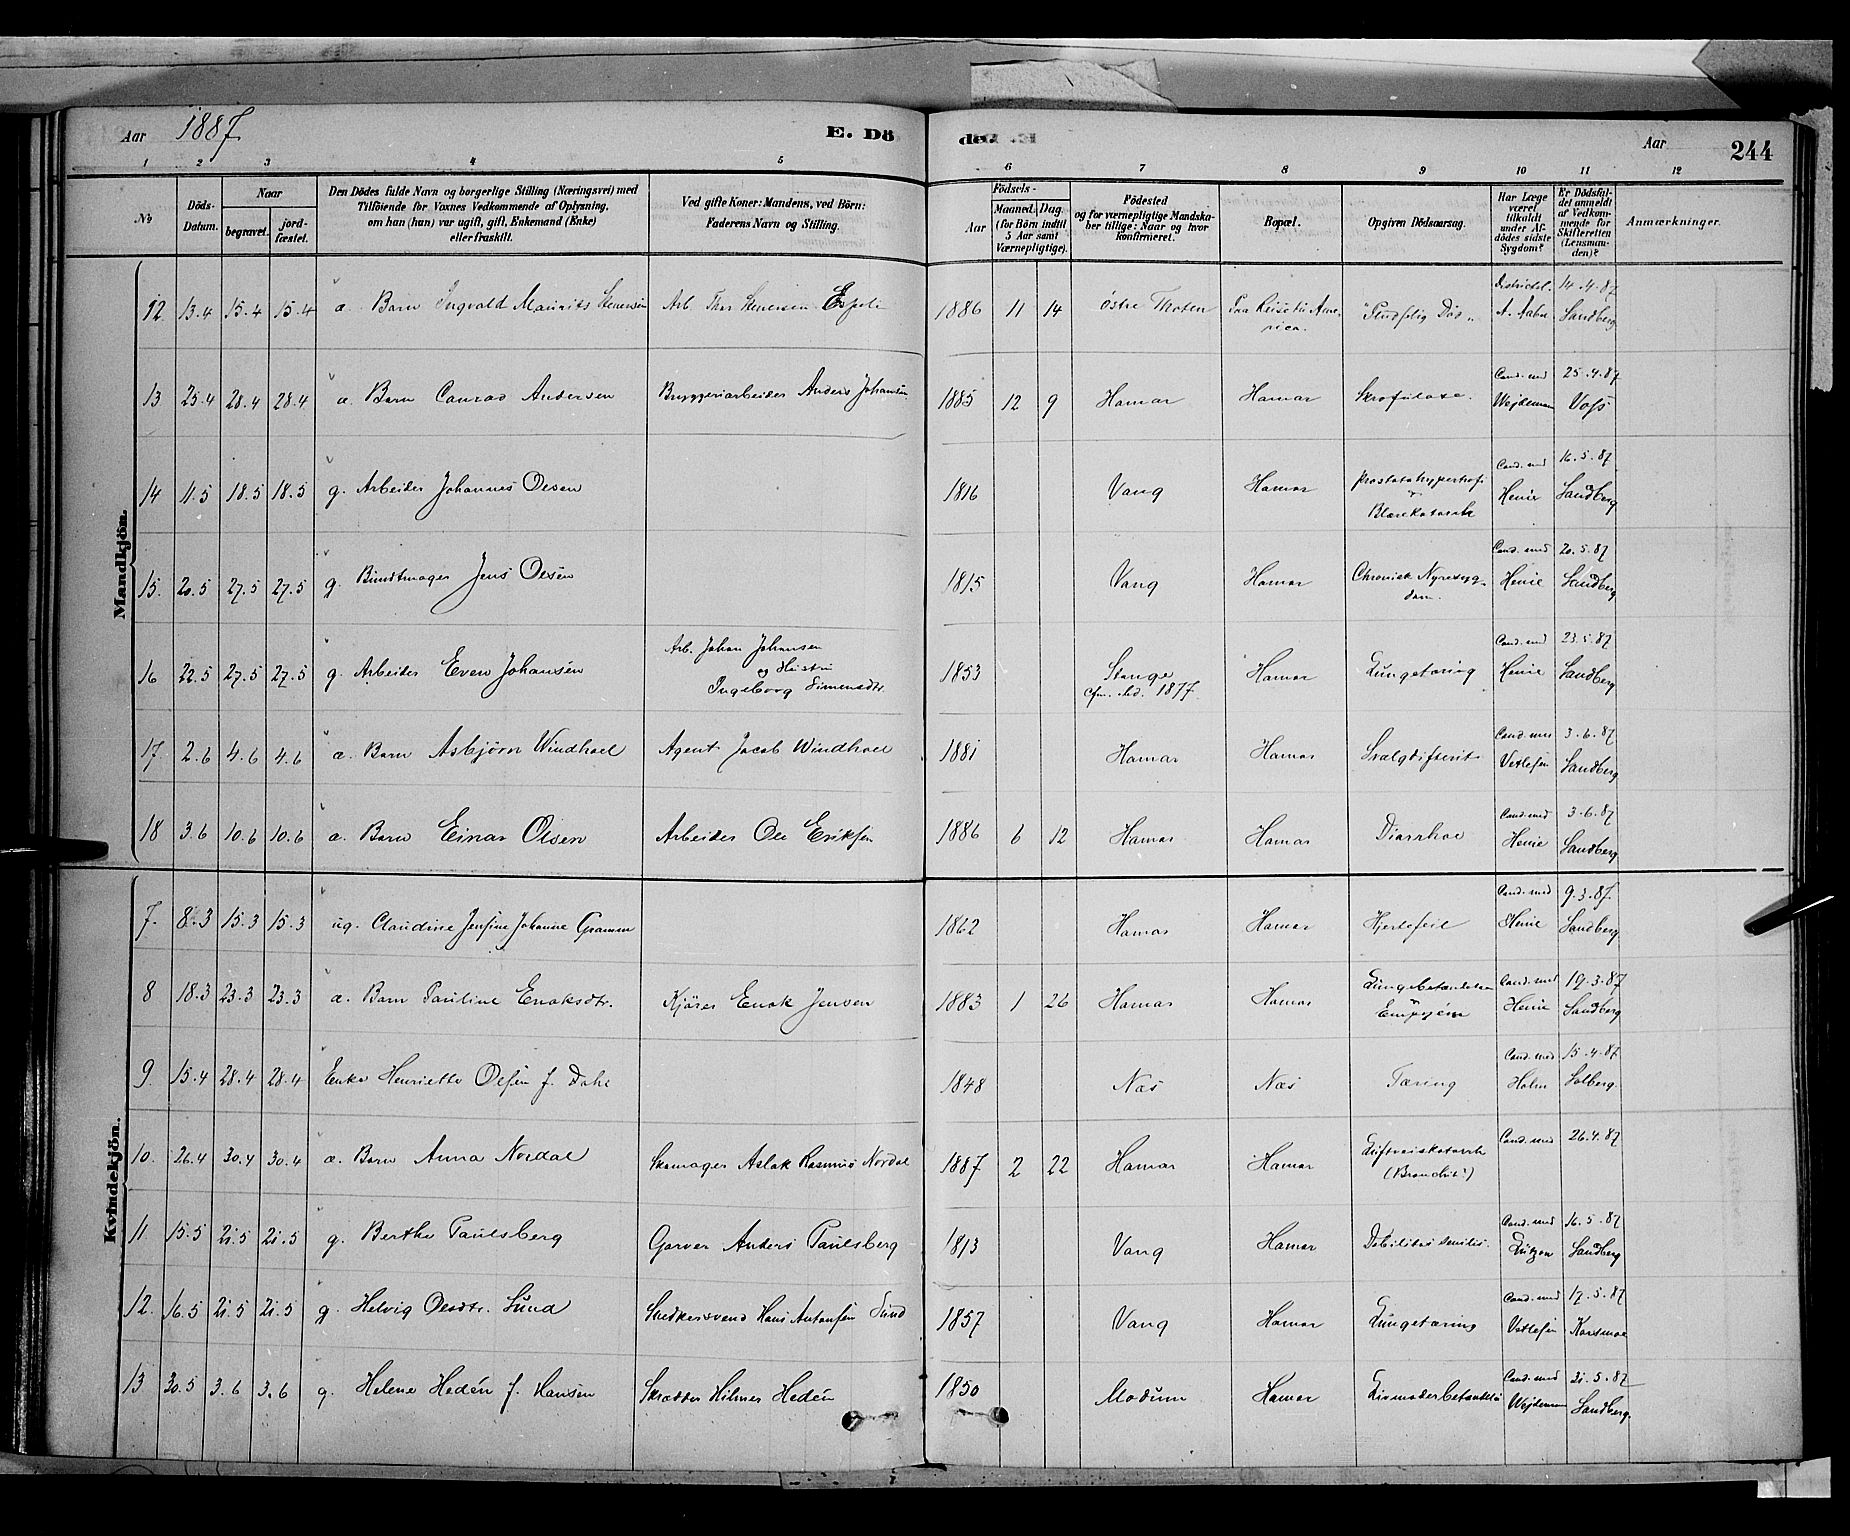 Aar 1887 E. Dö
de. Aar 244
1 2 3 4 5 6 7 8 9 10 11 12
No
Döds-Datum.
Naar
begravet.
jord-fæstet.
Den Dödes fulde Navn og borgerlige Stilling (Næringsvei) med
Tilföiende for Voxnes Vedkommende af Oplysning,
om han (hun) var ugift, gift, Enkemand (Enke)
eller fraskilt.
Ved gifte Koner: Mandens, ved Börn:
Faderens Navn og Stilling.
Födsels-
Aar
Maaned. Dag.
(for Börn indtil
5 Aar samt
Værnepligtige).
Födested
og for værnepligtige Mandska-
ber tillige: Naar og hvor
konfirmeret.
Bopæl.
Opgiven Dödsaarsag.
Har Læge
været
tilkaldt
under Af-
dödes sidste
Sygdom?
Er Dödsfal-
det anmeldt
af Vedkom-
mende for
Skifteretten
(Lensman-
den)?
Anmærkninger.
Mandkjön.
12 13.4 15.4 15.4 a. Barn Ingvald Maurits Stenersen Arb. Thor Stenersen Espeli 1886 11 14 Östre Thoten Paa Reise til Ame-rica. "Pludselig Död" Districtsl. A. Aabye 14.4.87 Sandberg
13 25.4 28.4 28.4 a. Barn Conrad Andersen Bryggeriarbeider Anders Johansen 1885 12 9 Hamar Hamar Skrofulose. Cand. med Wejdeman 25.4.87 Voss
14 11.5 18.5 18.5 g. Arbeider Johannes Olsen 1816 Vang Hamar Prostatahypertrofi Blærekatarrh Cand. med Henie 16.5.87 Sandberg
15. 20.5 27.5 27.5 g. Bundtmager Jens Olsen 1815 Vang Hamar Chronisk Nyresyg-dom. Cand. med Henie 20.5.87 Sandberg
16 22.5 27.5 27.5 g. Arbeider Even Johansen Arb. Johan Johansen og Hustru Ingeborg Simensdtr. 1853 Stange Cfm. 1877. Hamar Lungetæring Cand. med Henie 23.5.87 Sandberg
17. 2.6 4.6 4.6 a. Barn Asbjörn Windhoel Agent Jacob Windhoel 1881 Hamar Hamar Svælgdifterit Cand. med Vetlesen 3.6.87 Sandberg
18 3.6 10.6 10.6 a. Barn Einar Olsen Arbeider Ole Eriksen 1886 6 12 Hamar Hamar Diarrhoe Cand. med Henie 3.6.87 Sandberg
Kvindekjön.
7. 8.3 15.3 15.3 ug. Claudine Jensine Johanne Gramm 1862 Hamar Hamar Hjertefeil Cand. med Henie 9.3.87. Sandberg
8 18.3 23.3 23.3 a. Barn Pauline Enoksdtr. Kjörer Enok Jensen 1883 1 26 Hamar Hamar Lungebetændelse Empyem Cand. med Henie 19.3.87 Sandberg
9. 15.4 28.4 28.4 Enke Henriette Olsen f. Dahl 1848 Næs Næs Tæring Cand. med Holm 15.4.87 Solberg.
10. 26.4 30.4 30.4 a. Barn Anna Nordal Skomager Aslak Rasmus Nordal 1887 2 22 Hamar Hamar Luftveiskatarrh (Bronchit) Cand. med 26.4.87
11 15.5 21.5 21.5 g. Berthe Paulsberg Garver Anders Paulsberg 1813 Vang Hamar Debilitas senilis. Cand. med Lützow 16.5.87 Sandberg
12. 16.5 21.5 21.5 g. Helvig Olsdtr. Lund Snedkersvend Hans Antonsen Lund 1857 Vang Hamar Lungetæring Cand. med Vetlesen 17.5.87 Korsmoe
13 30.5 3.6 3.6 g. Helene Hedén f. Hansen Skrædder Hilmer Hedén 1850 Modum Hamar Livmoderbetændelse Cand. med Wejdeman 31.5.87 Sandberg.